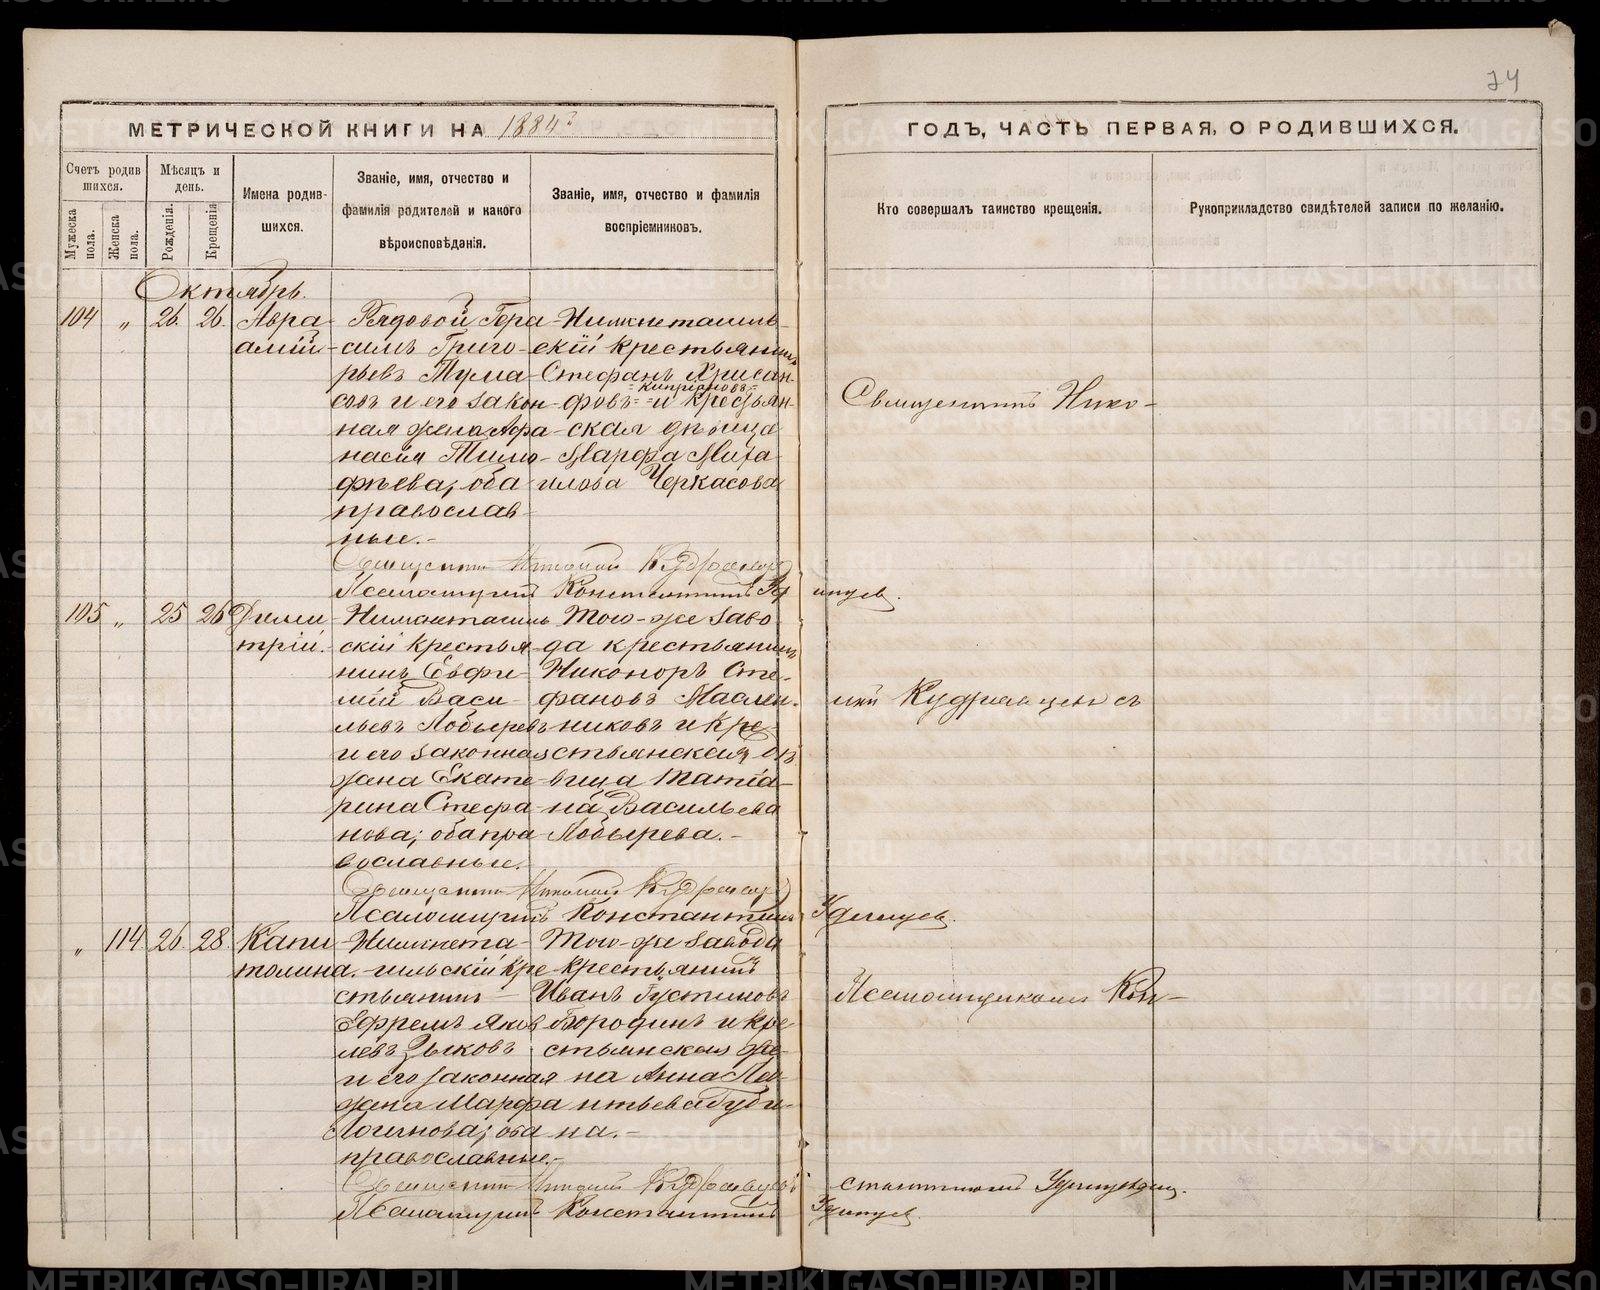 74
МЕТРИЧЕСКОЙ КНИГИ НА 1884
ГОДЪ, ЧАСТЬ ПЕРВАЯ, О РОДИВШИХСЯ.
Счетъ родив
шихся.
Мужеска
пола.
Женска
пола.
Мѣсяцъ и
день.
Рожденія.
Крещенія
Имена родив-
шихся.
Званіе, имя, отчество и
фамилія родителей и какого
вѣроисповѣданія.
Званіе, имя, отчество и фамилія
воспріемниковъ.
Кто совершалъ таинство крещенія.
Рукоприкладство свидѣтелей записи по желанію.
Октябрь.
104 „ 26. 26.
Авра-
амій
Рядовой Гера-
симъ Григо-
рьевъ Тума-
совъ и его закон-
ная жена Афа-
насія Тимо-
фѣева; оба
православ-
ные.-
Нижнетагиль-
скій крестьянинъ
Стефанъ Хрисан-
=Кипріановъ=
фовъ = и крестьян-
ская дѣвица
Марфа Миха-
илова Черкасова
Священникъ Николай Кудрявцевъ
Псаломщикъ Константинъ
105 „ 25 26
Дими-
трій.
Нижнетагиль-
скій крестья-
нинъ Евфи-
мій Васи-
льевъ Лобыревъ
и его законная
жена Екате-
рина Стефа-
нова; оба пра-
вославные.
Того-же заво-
да крестьянинъ
Никоноръ Сте-
фановъ Маслен-
никовъ и кре-
стьянская дѣ-
вица Татіа-
на Васильева
Лобырева.-
Священникъ Николай Кудрявцевъ
Псаломщикъ Константинъ
„ 114. 26. 28.
Капи-
толина.
Нижнета-
гильскій кре-
стьянинъ
Ефремъ Яков-
левъ Зыковъ
и его законная
жена Марфа
Логинова; оба
православные.-
Того-же завода
крестьянинъ
Иванъ Густиновъ
Бородинъ и кре-
стьянская же-
на Анна Ле-
нтьева Губи-
на.-
Священникъ Николай Кудрявцевъ
Псаломщикъ Константинъ
Священникъ Нико-
лай Кудрявцевъ съ
Псаломщикомъ Кон-
стантиномъ
METRIKI.GASO-URAL.RU